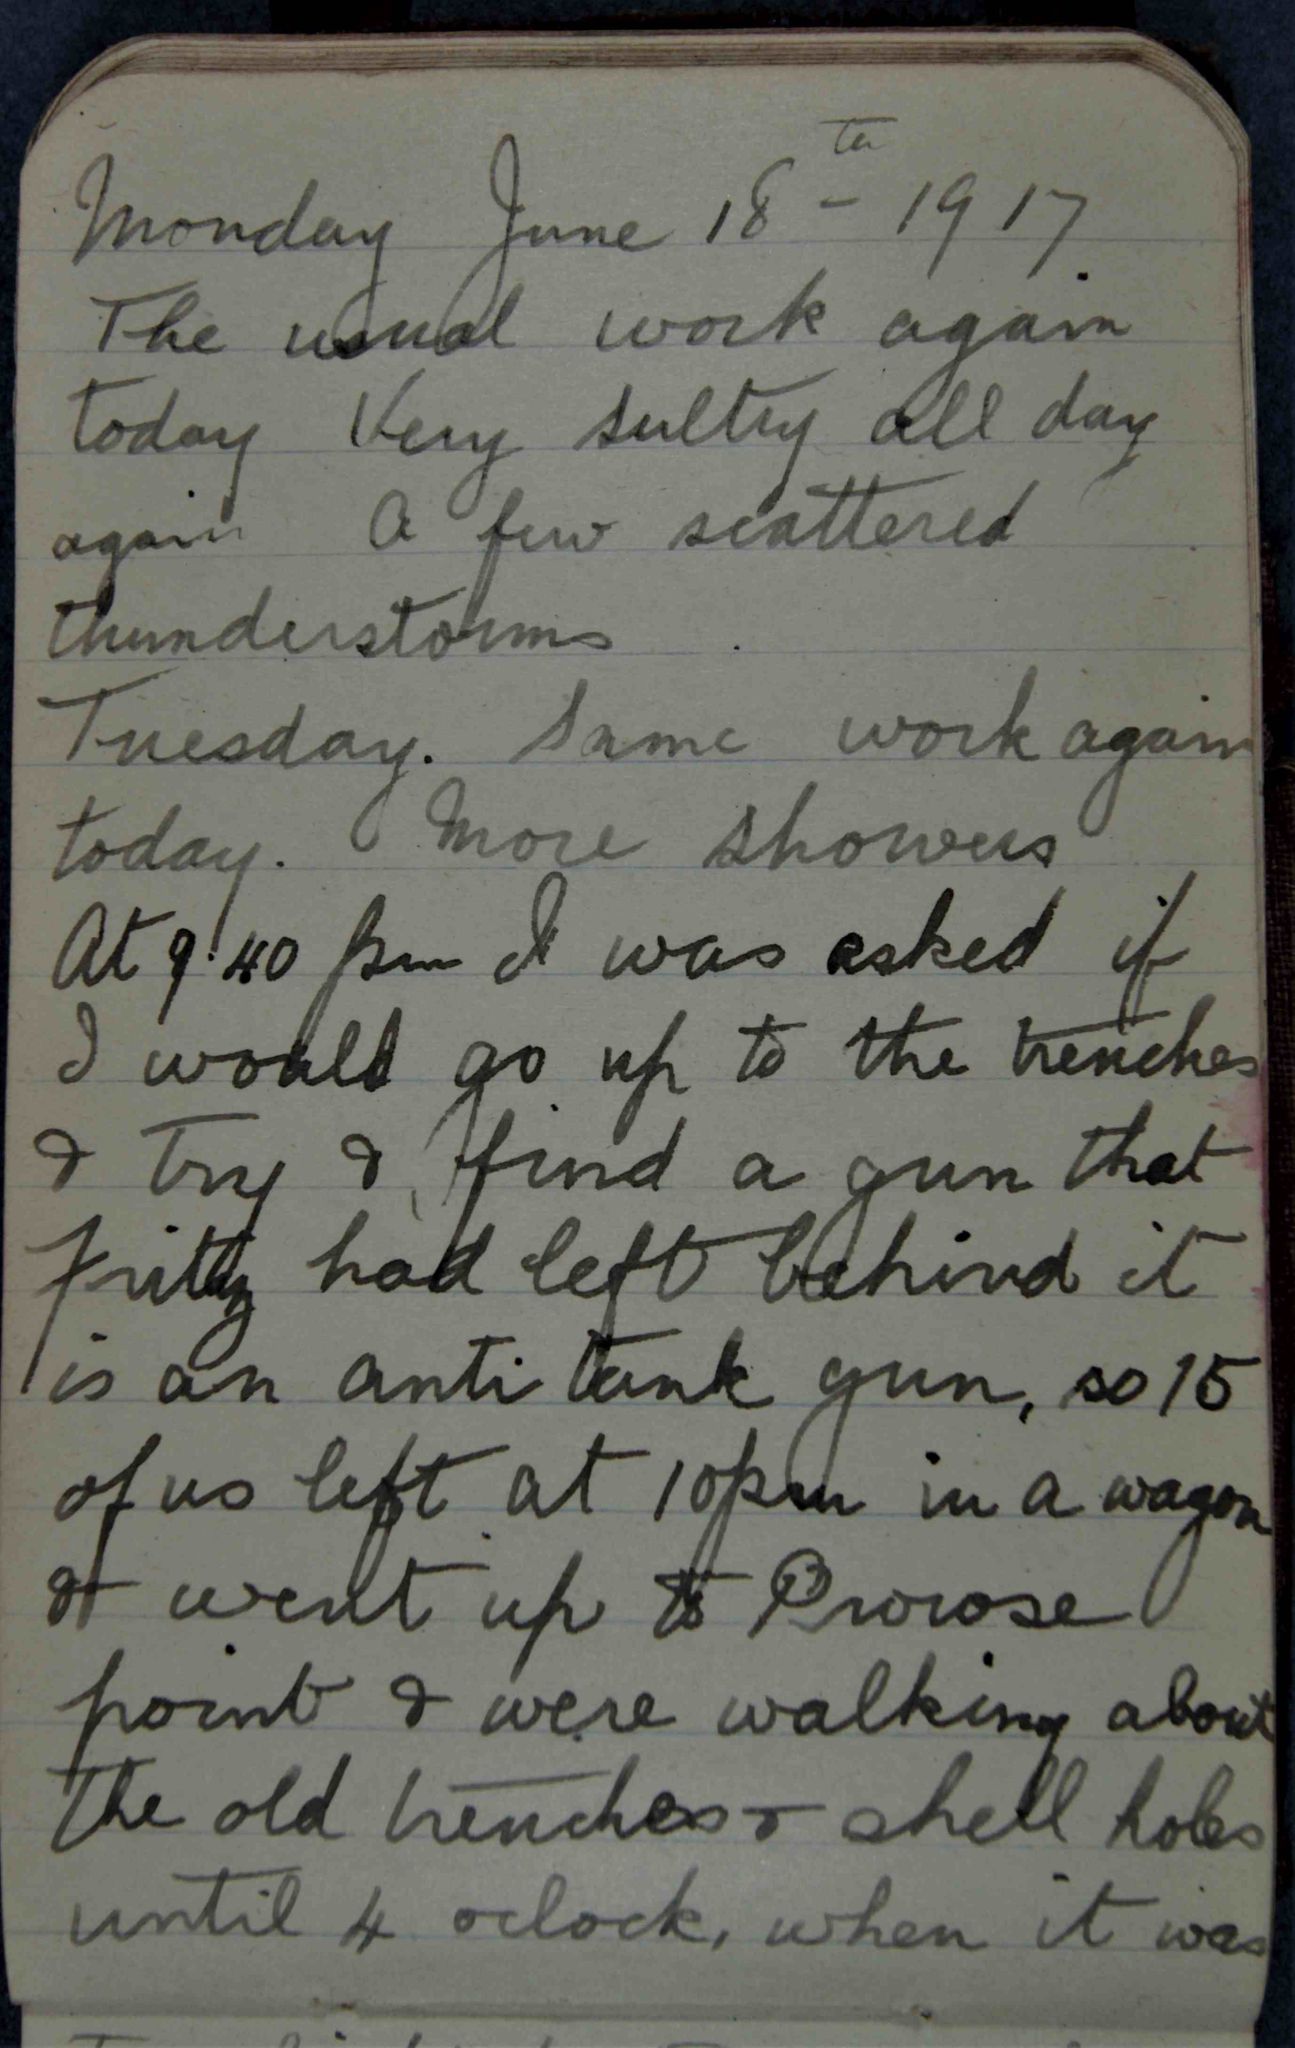 Monday June 18th - 1917
The usual work again
today Very sultry all day
again A few scattered
thunderstorms
Tuesday. Same work again
today. More showers
At 9.40 pm I was asked if
I would go up to the trenches
& try & find a gun that
Fritz had left behind it
is an anti tank gun, so 15
of us left at 10pm in a wagon
& went up to Prowse
point & were walking about
the old trenches & shell holes
until 4 oclock, when it was